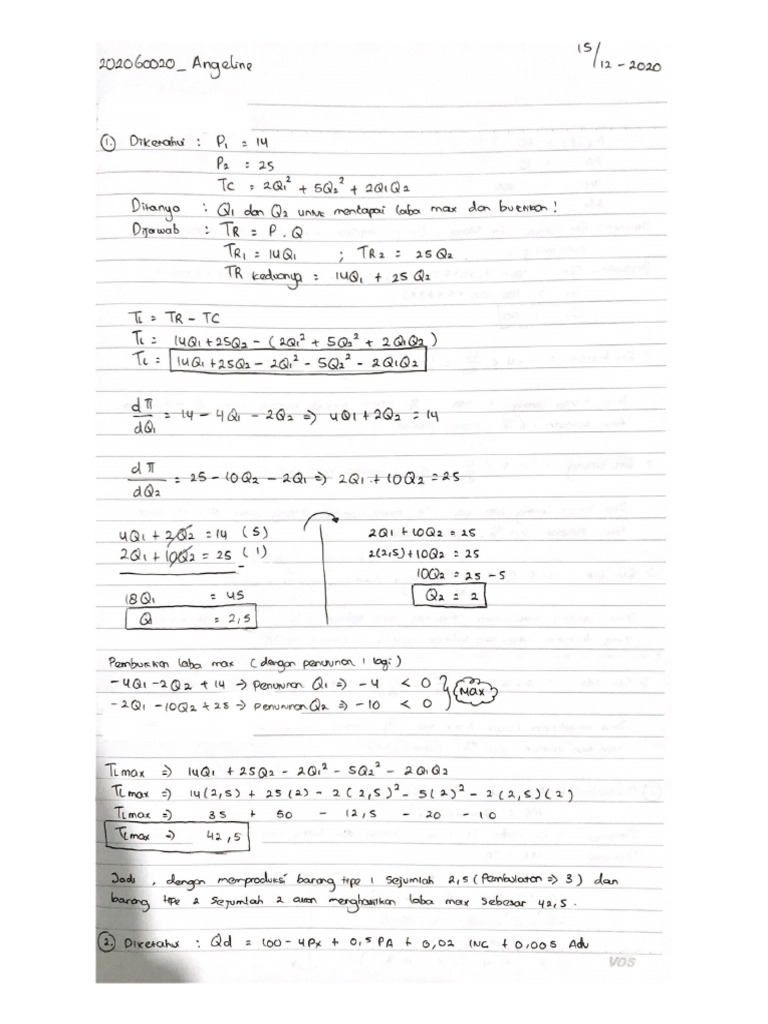 202060020_ Angeline
15/12-2020
① Diketahui : P₁ = 14
P₂ : 25
TC = 2Q₁² + 5Q₂² + 2Q₁Q₂
Ditanya : Q₁ dan Q₂ untuk mencapai laba max dan buktikan!
Dijawab : TR = P . Q
TR₁ = 14Q₁ ; TR₂ = 25Q₂
TR keduanya = 14Q₁ + 25Q₂
π = TR - TC
π = 14Q₁ + 25Q₂ - (2Q₁² + 5Q₂² + 2Q₁Q₂)
π = 14Q₁ + 25Q₂ - 2Q₁² - 5Q₂² - 2Q₁Q₂
dπ/dQ₁ = 14 - 4Q₁ - 2Q₂ => 4Q1 + 2Q₂ = 14
dπ/dQ₂ = 25 - 10Q₂ - 2Q₁ => 2Q₁ + 10Q₂ = 25
4Q₁ + 2Q₂ = 14 (5)
2Q₁ + 10Q₂ = 25 (1)
18Q₁ = 45
Q = 2,5
2Q1 + 10Q₂ = 25
2(2,5) + 10Q₂ = 25
10Q₂ = 25 - 5
Q₂ = 2
Pembuktian laba max (dengan penurunan 1 lagi)
-4Q₁ - 2Q₂ + 14 → penurunan Q₁ => -4 < 0
-2Q₁ - 10Q₂ + 25 → penurunan Q₂ => -10 < 0
Max
πmax => 14Q₁ + 25Q₂ - 2Q₁² - 5Q₂² - 2Q₁Q₂
πmax => 14(2,5) + 25(2) - 2(2,5)² - 5(2)² - 2(2,5)(2)
πmax => 35 + 50 - 12,5 - 20 - 10
πmax => 42,5
Jadi, dengan memproduksi barang tipe 1 sejumlah 2,5 (Pembulatan => 3) dan
barang tipe 2 sejumlah 2 akan menghasilkan laba max sebesar 42,5.
② Diketahui : Qd = 100 - 4Px + 0,5 PA + 0,02 INC + 0,005 Adv
VOS